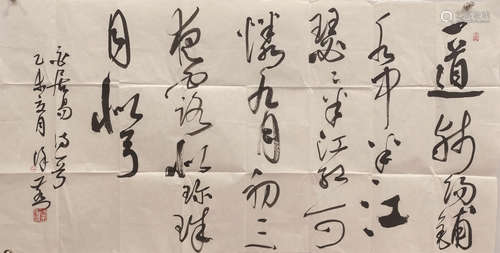 一道残阳铺
水中半江
瑟瑟半江红可
怜九月初三
夜露似珍珠
月似弓
白居易诗一首
乙未